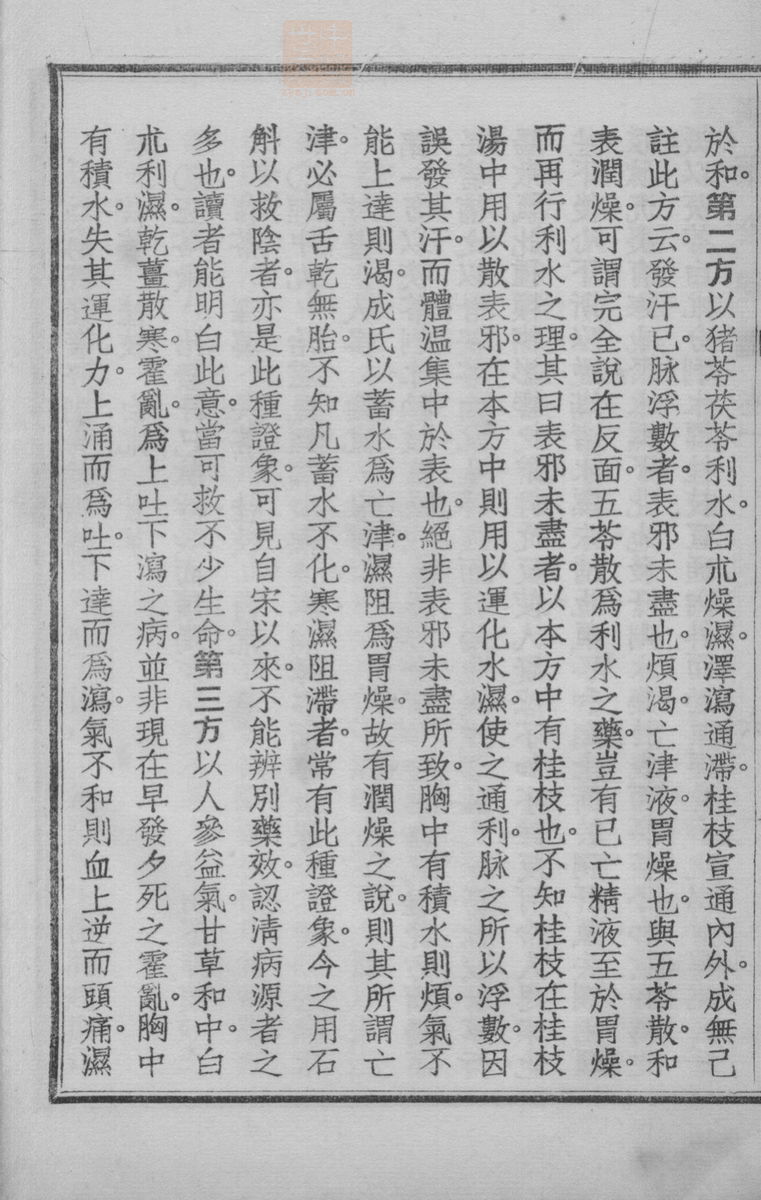 於和。第二方以猪苓茯苓利水。白朮燥濕。澤瀉通滯。桂枝宣通內外。成無己
註此方云。發汗已。脉浮數者。表邪未盡也。煩渴。亡津液。胃燥也。與五苓散。和
表潤燥。可謂完全說在反面。五苓散爲利水之藥。豈有已亡精液至於胃燥。
而再行利水之理。其曰表邪未盡者。以本方中有桂枝也。不知桂枝在桂枝
湯中用以散表邪。在本方中則用以運化水濕。使之通利。脉之所以浮數。因
誤發其汗。而體温集中於表也。絕非表邪未盡所致。胸中有積水則煩。氣不
能上達則渴。成氏以蓄水爲亡津。濕阻爲胃燥。故有潤燥之說。則其所謂亡
津。必屬舌乾無胎。不知凡蓄水不化。寒濕阻滯者。常有此種證象。今之用石
斛以救陰者。亦是此種證象。可見自宋以來。不能辨別藥效。認清病源者之
多也。讀者能明白此意。當可救不少生命。第三方以人參益氣。甘草和中。白
朮利濕。乾薑散寒。霍亂。爲上吐下瀉之病。並非現在早發夕死之霍亂。胸中
有積水。失其運化力。上涌而爲吐。下達而爲瀉。氣不和則血上逆而頭痛。濕